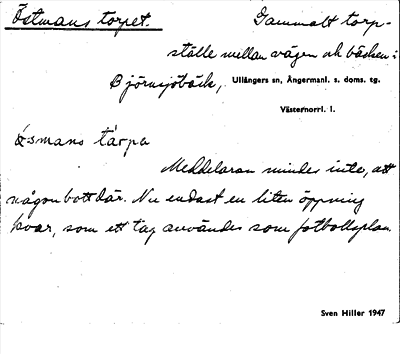 Östmans torpet. Gammalt torp-
ställe mellan vägen och bäcken i
Björnsjöbäck, Ullångers sn, Ångermanl. s. doms. tg.
Västernorrl. l.
ö́smans tárpa
Meddelaren mindes inte, att
någon bott där. Nu endast en liten öppning
kvar, som ett tag användes som fotbollsplan.
Sven Hiller 1947